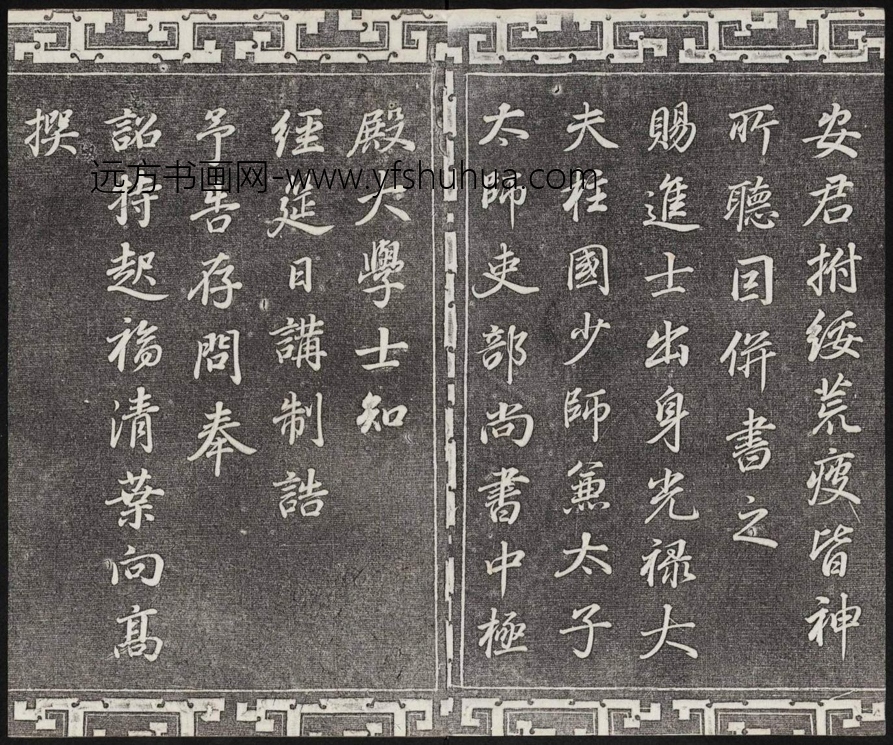 安君拊绥荒疫皆神
所聽因併書之
賜進士出身光禄大
夫柱國少師兼太子
太師吏部尚書中極
殿大學士知
經筵日講制誥
予告存問奉
詔特起福清葉向髙
撰
远方书画网-www.yfshuhua.com